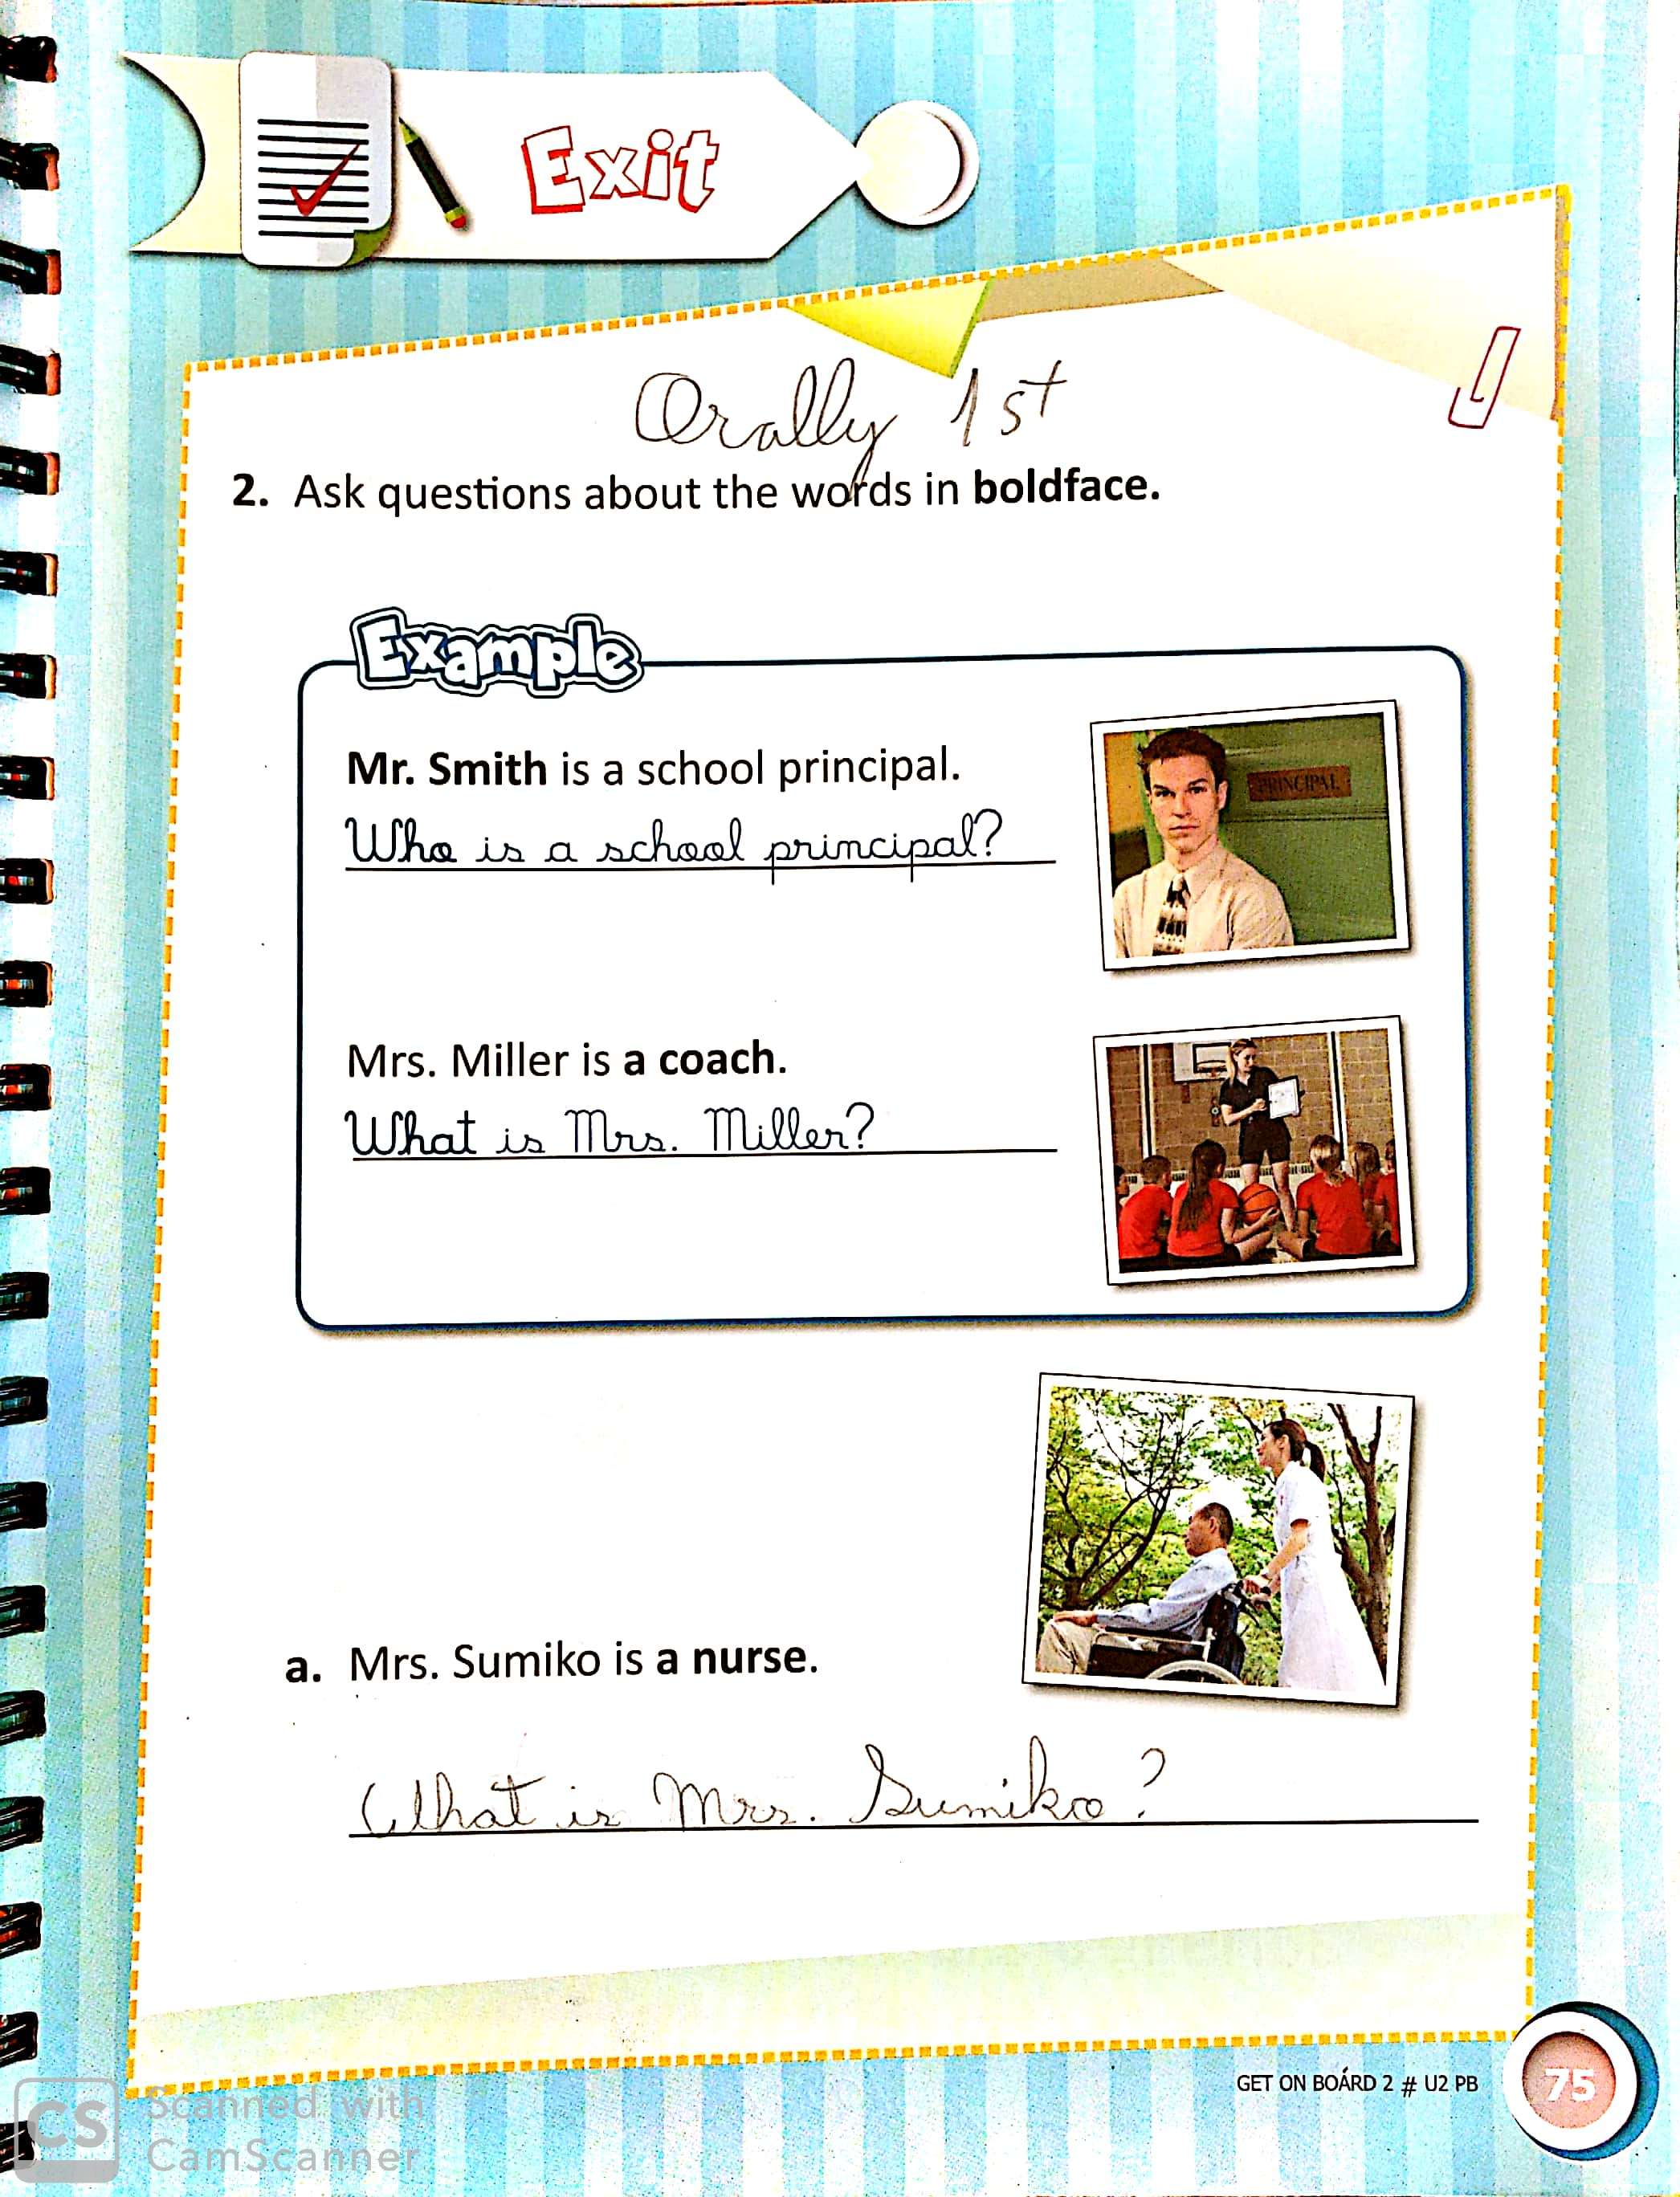 Exit
Orally 1st
2. Ask questions about the words in boldface.
Example
Mr. Smith is a school principal.
Who is a school principal?
PRINCIPAL
Mrs. Miller is a coach.
What is Mrs. Miller?
a. Mrs. Sumiko is a nurse.
What is Mrs. Sumiko?
GET ON BOÁRD 2 # U2 PB
75
CS
Scanned with
CamScanner